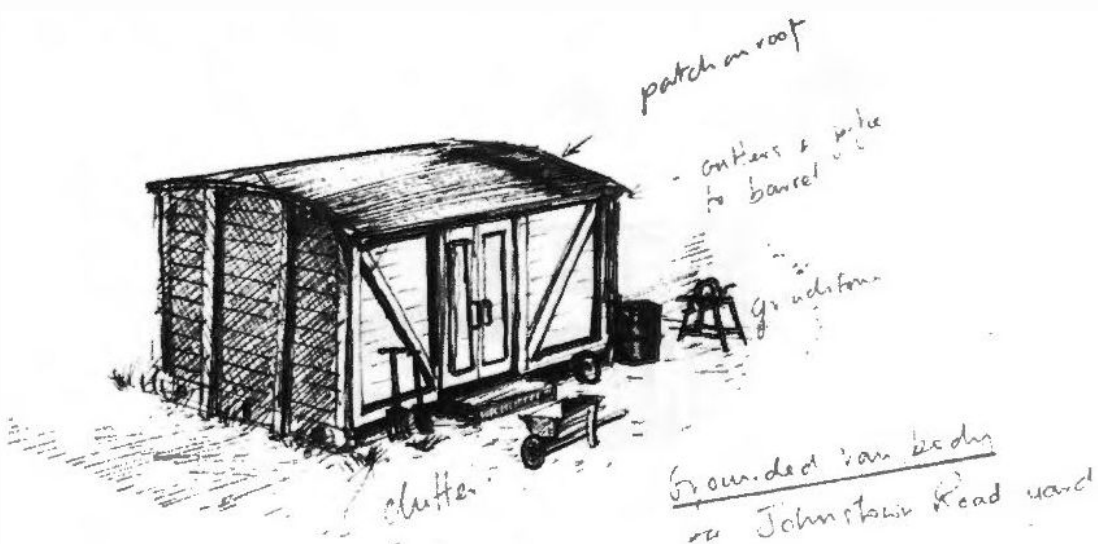 patch on roof
- gutters &
to barrel
grindstone
clutter
Grounded van body
Johnstown Road yard